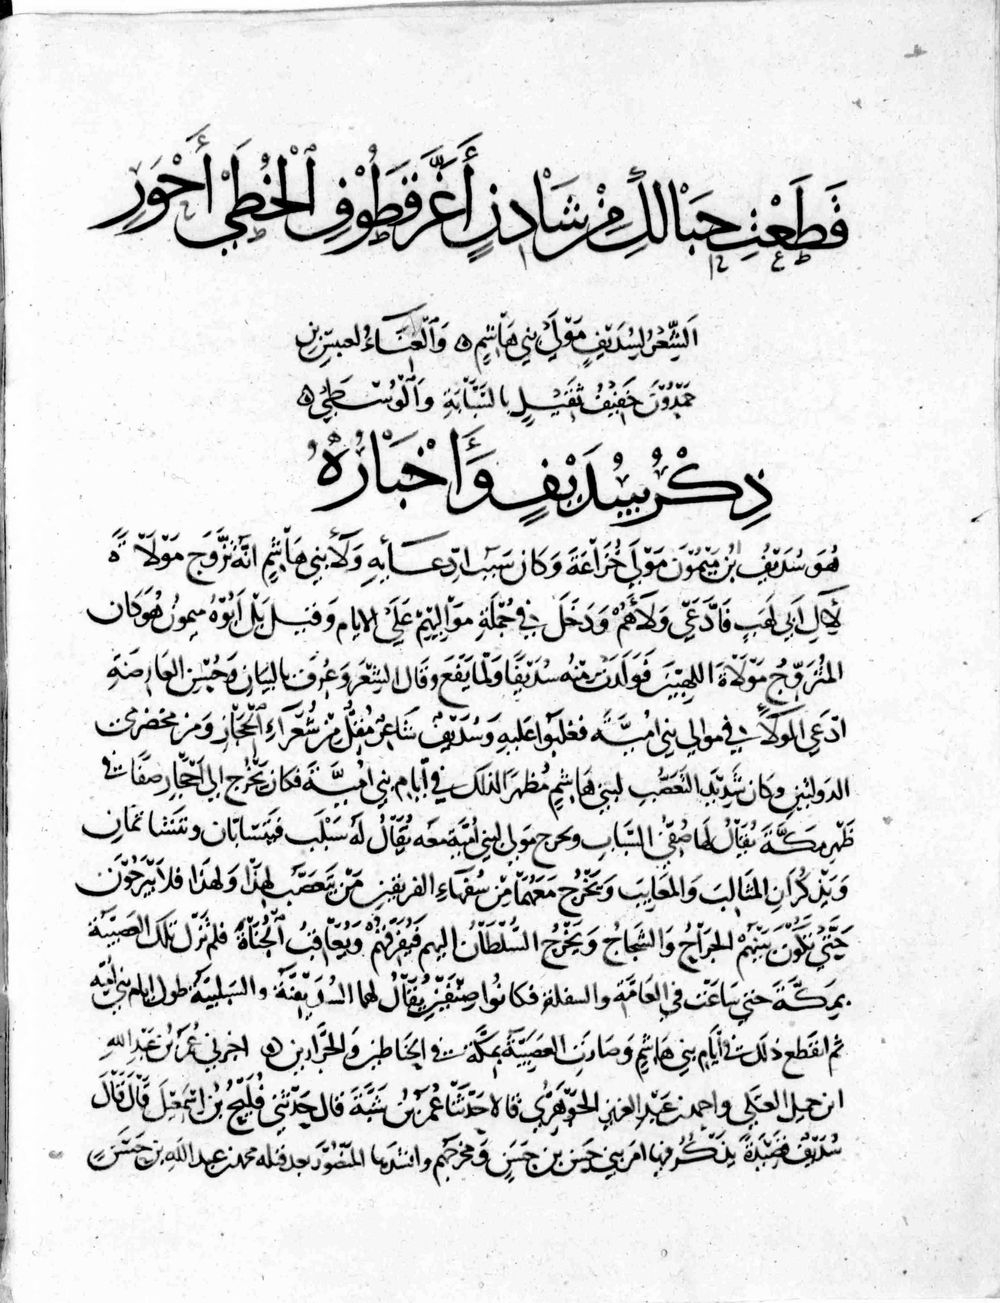 قَطَعْتِ حِبَالَكِ مِنْ شَادِنٍ أَغَرَّ قَطُوْفِ الْخُطَىْ أَحْوَرِ
اَلشِّعْرُ لِسُدَيْفٍ مَوْلَى بني هَاْشِمٍ ه وَالْغِنَاءُ لعبيس بن
حَمْدُوْنَ خَفِيْفُ ثَقِيْلٍ بالسَّبَّابَةِ وَالْوُسْطَىْ ه
ذِكْرُ سُدَيْفٍ وَأَخْبَارُهُ
هُوَ سُدَيْفُ بْنُ مَيْمُوْن مَوْلَى خُزَاْعَةَ وَكَان سَبَب ادّعَائِهِ وَلَاءَ بني هَاْشِمٍ انَّهُ تَزَّوَجَ مَوْلَاْةً
لِآلِ ابَى لهَبٍ فَادَّعَى وَلَاْءَهُمْ وَدَخَلَ في جُمْلَةِ مَوَالِيْهِمْ عَلَى الايام وقيل بَلْ أبُوْهُ ميمون هُوَ كَان
المُتَزَوّجُ مَوْلَاْةَ اللهبيّينَ فَوَلَدَتْ مِنْهُ سُدَيْفًا وَلمّا يَفَعَ وقَال الشِّعْرَ وَعُرِفَ بالبَيَانِ وَحُسْنِ العَارضَةِ
ادّعَى الولَاءَ في موالي بني هاشم فغلبوا عَليهِ وَسُدَيْفٌ شَاعِرٌ مُقِلٌّ مِنْ شُعَرَاءِ الْحِجَازِ وَمن مخضرمى
الدولتين وكان شَدِيْدَ التَّعَصُّبِ لبني هَاشِمٍ مُظهرًا لذلك في أيّام بني أمَيّةَ فكان يَخْرُج الى احْجَار صفَا في
ظَهْرِ مَكَّةَ يُقَالُ لهَا صُفِيُّ السِّبَابِ ويخرج مَوْلى لبني أمَيّةَ مَعَه يُقَالُ لَهُ سَبّاب فيَتسَابّان ويتشَاتمان
وَيَذكُرَانِ المَثَالبَ وَالمَعَايبَ وَيَخْرُجُ مَعَهُمَا مِنْ سُفَهَاءِ الفَريقين مَنْ يَتَعَصّب لهذَا وَلهَذَا فلاَ يَبْرَحُوْن
حَتَّى يكُوْنَ بَيْنَهُمْ الجرَاحُ وَالشِّجَاجُ وَيَخْرُجُ السُّلْطَاْنُ اليهم فَيُفَرّقُهُمْ وَيُعَاقِبُ الْجُنَاْةَ فلم تَزَلْ تلكَ العَصَبيّةُ
بمَكَّةَ حتى شَاعَتْ في العَامَّةِ والسفلة فكانُوا صِنْفَيْن يُقَالُ لهمَا السُّدَيْفِيَّةُ والسّبابيّةُ طول ايام بني أُميّة
ثم انقَطع ذلكَ في أيَّامِ بني هَاشِمٍ وَصَارَت العَصَبِيّةُ بمَكَّةَ في الحنّاطين والجَزَّارين ه اخبرني عُمَرُ بْنُ عَبْدِ اللّهِ
ابن جميل العتكى واحمد بن عَبْدِ العزيز الجوْهَرىّ قَالا حَدّثنَا عُمَرُ بْنُ شَبَّةَ قال حَدّثَني فُلَيْحُ بْنُ اسْمَعِيْلَ قَالَ قَالَ
سُدَيْفٌ قصِيْدَةً يذكُر فيها امر بني حَسَن بن حَسَنٍ ومخرَجهم وانشدها المنصُوْرَ بعد قتله محمد بن عبد الله بن حَسَنٍ